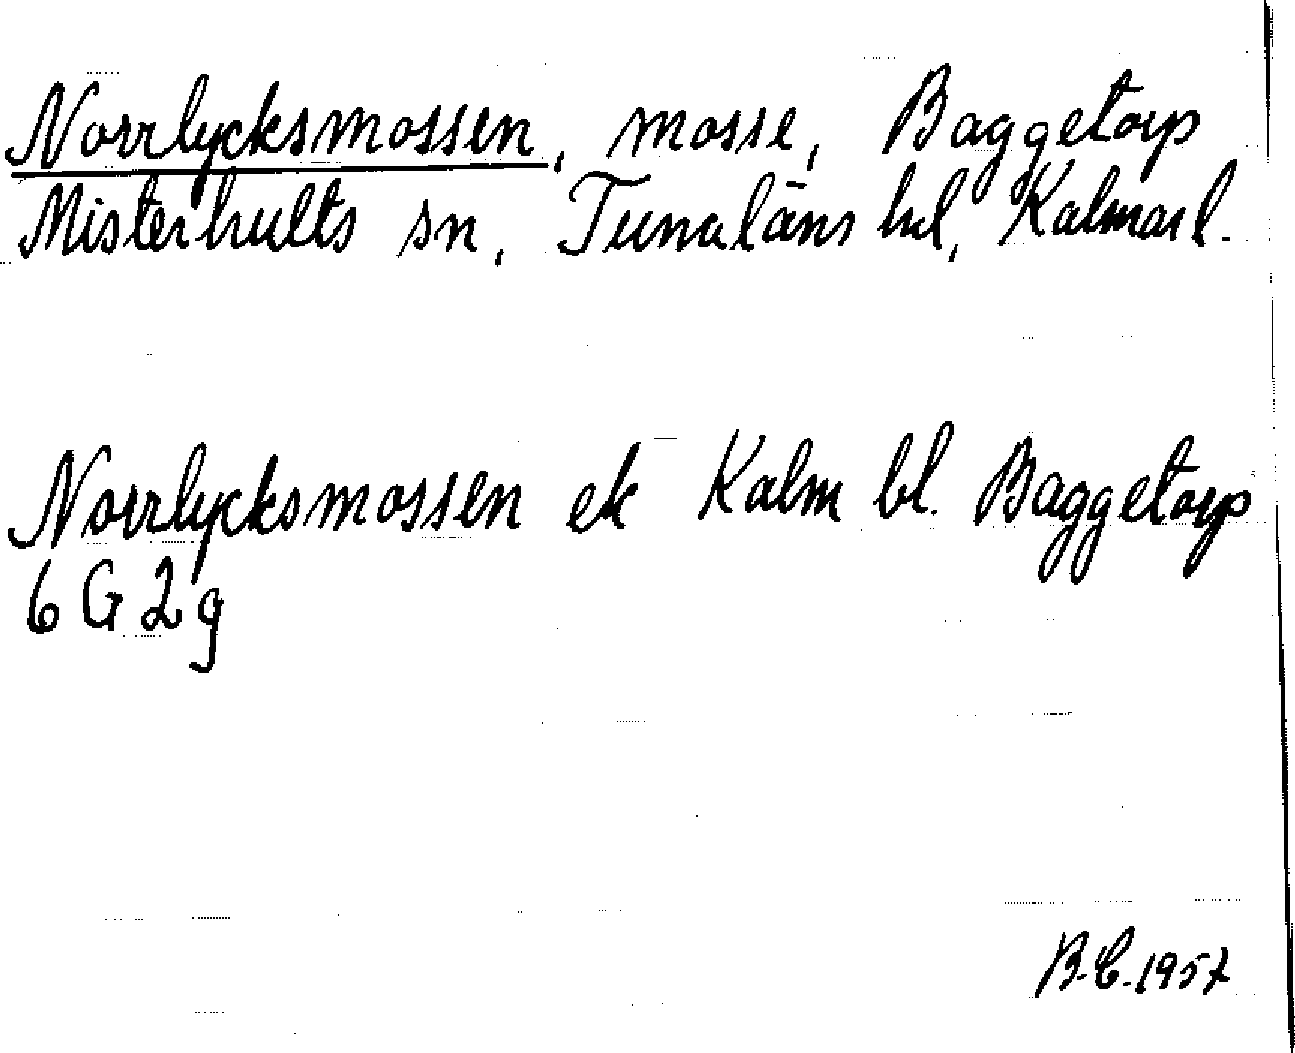 Norrlycksmossen, mosse, Baggetorp
Misterhults sn, Tunaläns hd, Kalmar l.
Norrlycksmossen ek Kalm bl. Baggetorp
6 G 2 g
B.C. 1957